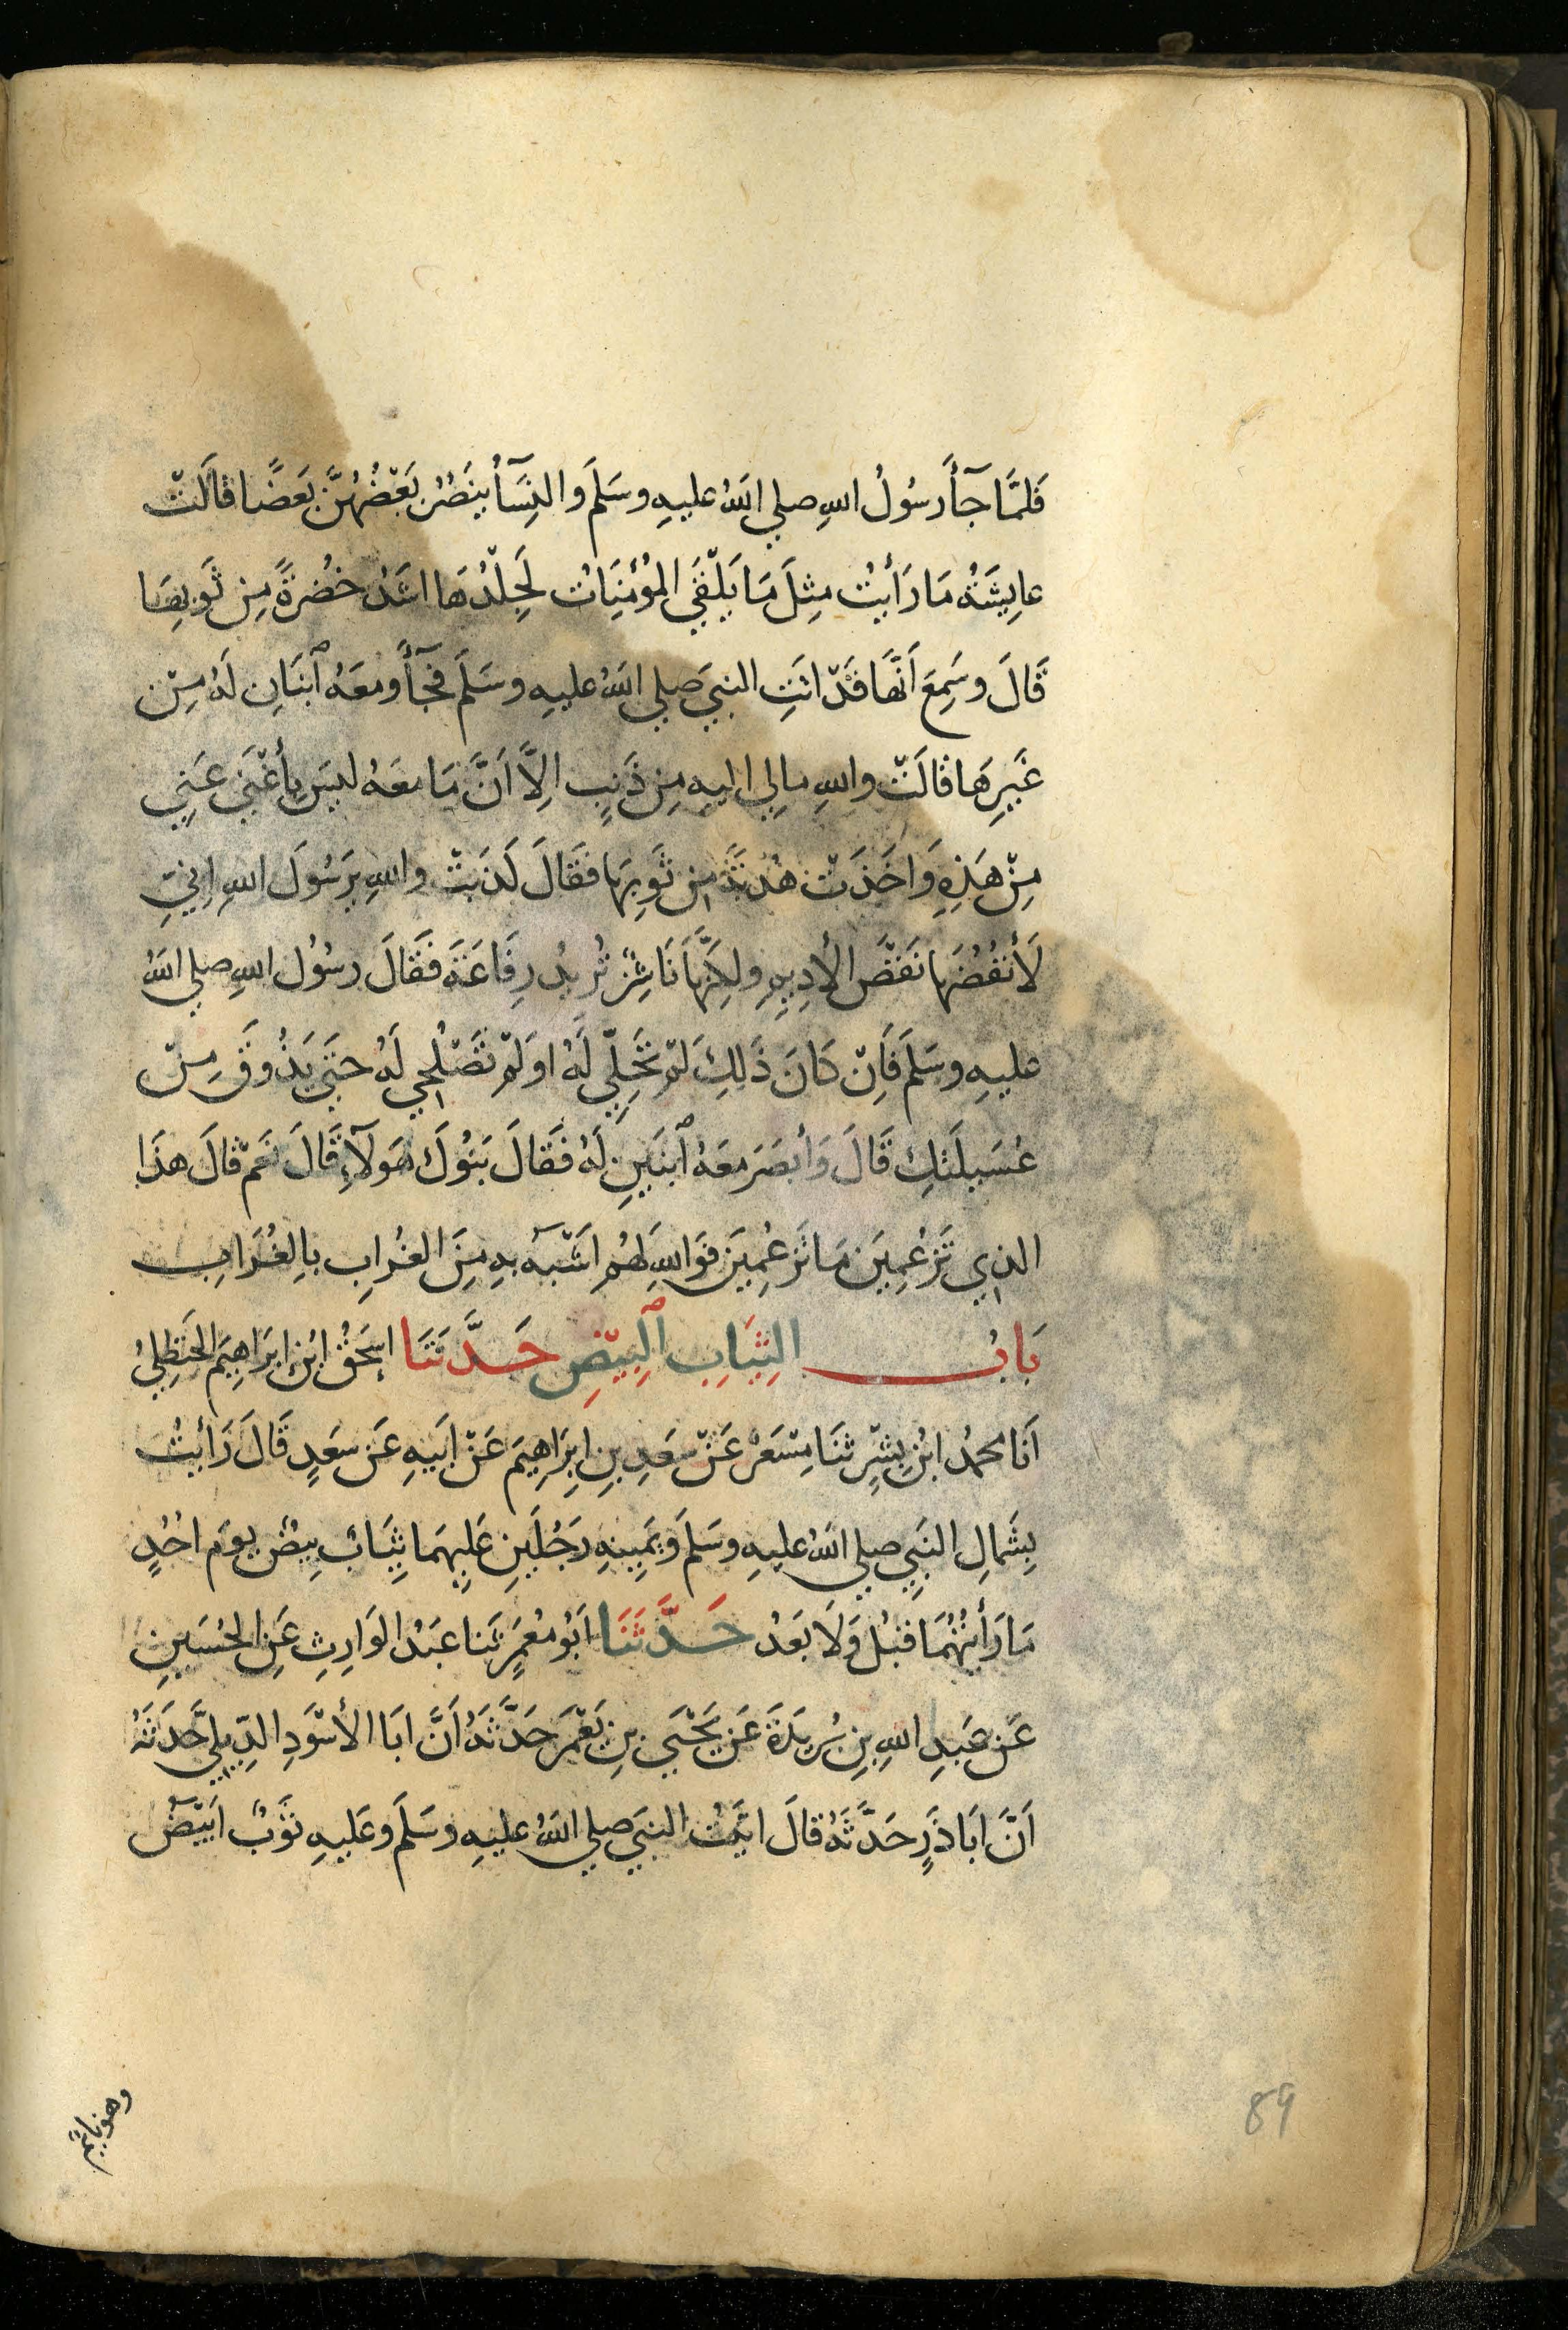 فَلَمَّا جَآأَ رَسُولُ اللهِ صلي اللهُ عليهِ وسَلَمَ وَالنِسَآأُ يَنصُرُ بَعْضُهُنَّ بَعضًا قَالَتْ
عايِشَةُ مَا رَأَيْتُ مِثلَ مَا يَلْقَي المُؤْمِنَاتُ لَجِلْدُهَا اشَدُ خُضرَةً مِن ثَوبِهَا
قَالَ وَسَمِعَ اَنَّهَا قَدْ اتَتِ النبيَ صلي اللهُ عليهِ وسَلَمَ فجَآأَ ومَعَهُ ٱبنَانِ لَهُ مِنْ
غَيرِهَا قَالَتْ واللهِ مالِي اليهِ مِن ذَنبٍ الِاَّ اَنَّ مَا معَهُ ليسَ بِأَغْنَي عَنِي
مِنْ هَذِهِ وَاخَذَتْ هُدبَةً مِن ثَوبِهَا فَقَالَ كَذبَتْ واللهِ يَرَسُولَ اللهِ اِنيِ
لَأَنفُضُهَا نَفضَ الأَدِيمِ ولكِنَّهَا نَاشِزٌ تُرِيدُ رِفَاعَةَ فَقَالَ رسُولُ اللهِ صلي اللهُ
عليهِ وسَلَمَ فَاِنْ كَانَ ذَلِكِ لَمْ تَحِلِّي لَهُ اولَمْ تَصْلُحِي لَهُ حتَي يَذُوقَ مِنْ
عُسَيلَتكِ قَالَ وَأَبصَرَ معَهُ ٱبنَينِ لَهُ فَقَالَ بَنُوكَ هَولَآءِ قَالَ نَعَمْ قَالَ هذَا
الذِي تَزعُمِينَ مَا تَزعُمِينَ فَوَاللهِ لَهُم اَشْبَهُ بهِ مِنَ الغُرابِ بالِغُرَابِ
بَابُ الثِيَابِ ٱلبِيْضِ حَدَّثَنَا اِسحَقُ ابنُ ابرَاهِيمَ الحَنظلِيُ
اَنَا محمدُ ابنُ بِشْرٍ ثنَا مِسْعَرٌ عَنْ سَعَدِ بنِ ابِرَاهِيمَ عَنْ ابَيهِ عَن سعَدٍ قَالَ رَأَيتُ
بِشَمالِ النَبِي صلي اللهُ عليهِ وسَلَمَ وَيَمِينِهِ رَجُلَينِ عَلِيهمَا ثِيَابٌ بِيضٌ يومَ احُدٍ
مَا رَأَيتُهُمَا قبلُ وَلَا بَعَدُ حَدَّثَنَا ابُو مَعْمَرٍ ثنا عبَدُ الوَارِثِ عَنِ الحُسَينِ
عَن عبَدِ اللهِ بنِ بُريدَةَ عَن يَحْيَي بنِ يَعْمَرَ حَدَّثَهُ اَنَّ ابَا الأَسْوَدِ الدِيلِيَّ حَدَثَهُ
اَنَّ ابَا ذَرٍ حَدَّثَهُ قالَ اتَيتُ النبيَ صلي اللهُ عليهِ وسَلَمَ وعَليهِ ثَوبٌ ابَيْضُ
وهو نايمٌ
89